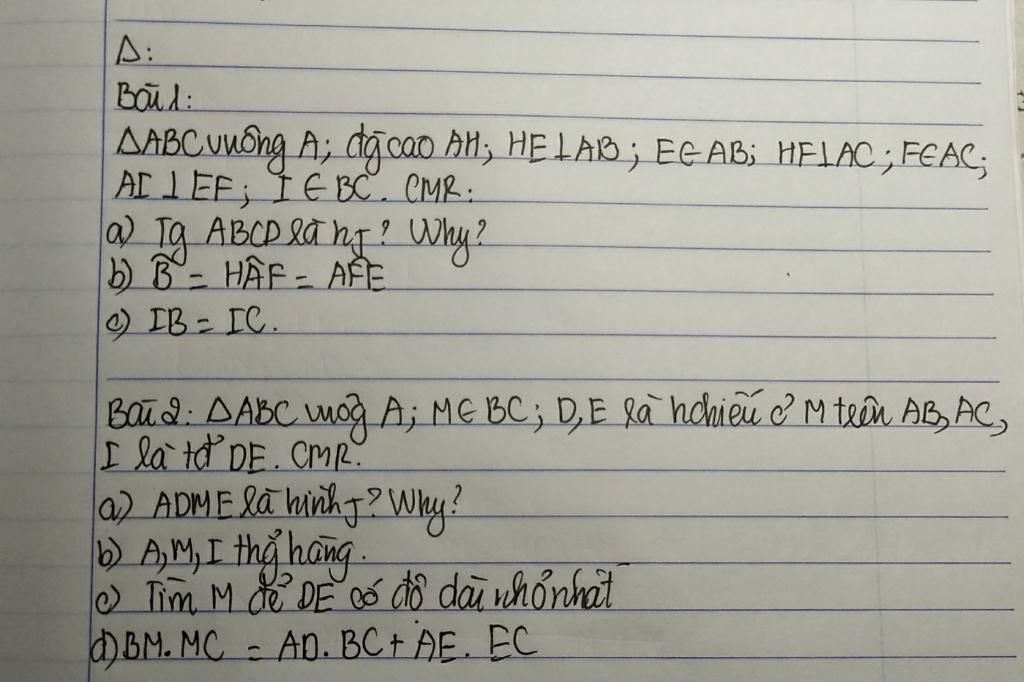 Δ:
Bài 1:
ΔABC vuông A; đg cao AH; HE⊥AB; E∈AB; HF⊥AC; F∈AC;
AI⊥EF; I∈BC. CMR:
a) Tg ABCD là hj? Why?
b) B̂ = HÂF = AF̂E
c) IB = IC.
Bài 2: ΔABC vuog A; M∈BC; D,E là hchiếu c' M trên AB, AC,
I là tđ DE. CMR.
a) ADME là hình j? Why?
b) A, M, I thg hàng.
c) Tìm M để DE có độ dài nhỏ nhất
d) BM.MC = AD.BC + AE.EC